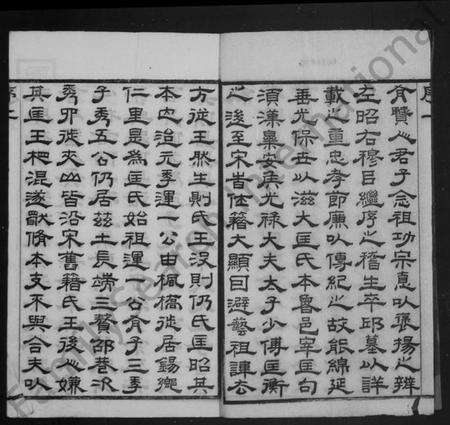 序一
食賢㞢君子念祖功宗惪以襃揚㞢辨
左昭右穆㠯繼序㞢稽生卒邱墓以詳
載㞢重忠孝節廉以傳紀㞢故能綿延
垂光保世以滋大匡氏本魯邑宰匡句
須漢臯安矦光祿大夫太子少傅匡衡
㞢後至宋㞢仕籍大顯回避藝祖諱去
方從王朕生則氏王沒則仍氏匡昭其
本也洎元季運一公由楓橋徙居錫鄉
仁里是為匡氏始祖運一公有子三季
子秀五公仍居茲土長端三贅邵巷次
秀邪徙夾山皆沿宋舊籍氏王後㞢嫌
其匡王杷混遂歗脩本支不與合夫以
序二
Family Search International